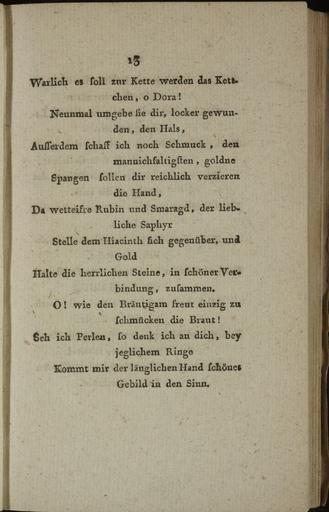 13
Warlich es ſoll zur Kette werden das Kett-
chen, o Dora!
Neunmal umgebe ſie dir, locker gewun-
den, den Hals,
Auſſerdem ſchaff ich noch Schmuck, den
mannichfaltigſten, goldne
Spangen ſollen dir reichlich verzieren
die Hand,
Da wetteifre Rubin und Smaragd, der lieb-
liche Saphyr
Stelle dem Hiacinth ſich gegenüber, und
Gold
Halte die herrlichen Steine, in ſchöner Ver-
bindung, zuſammen.
O! wie den Bräutigam freut einzig zu
ſchmücken die Braut!
Seh ich Perlen, ſo denk ich an dich, bey
jeglichem Ringe
Kommt mir der länglichen Hand ſchönes
Gebild in den Sinn.